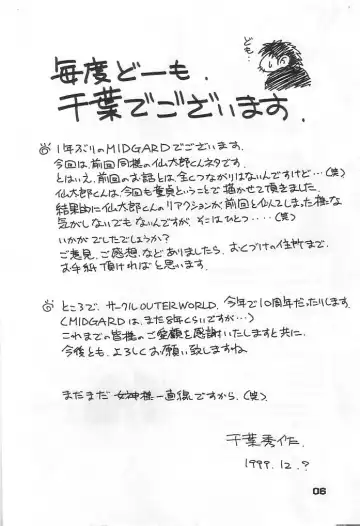 ども…
毎度どーも.
千葉でございます.
1年ぶりのMIDGARDでございます.
今回は、前回同様の仙太郎くんネタです.
とはいえ、前回のお話とは、全くつながりはないんですけど…(笑)
仙太郎くんは、今回も童貞ということで描かせて頂きました.
結果的に仙太郎くんのリアクションが前回と似てしまった様な
気がしないでもないんですが、そこはひとつ‥‥(笑)
いかがでしたでしょうか?
ご意見、ご感想、などありましたら、おくづけの住所まで、
お手紙頂ければと思います.
ところで、サークルOUTERWORLD、今年で10周年だったりします.
(MIDGARDは、まだ8年くらいですが…)
これまでの皆様のご愛顧を感謝いたしますと共に、
今後とも、よろしくお願い致しますね
まだまだ女神様一直線ですから、(笑).
千葉秀作.
1999.12.?
06